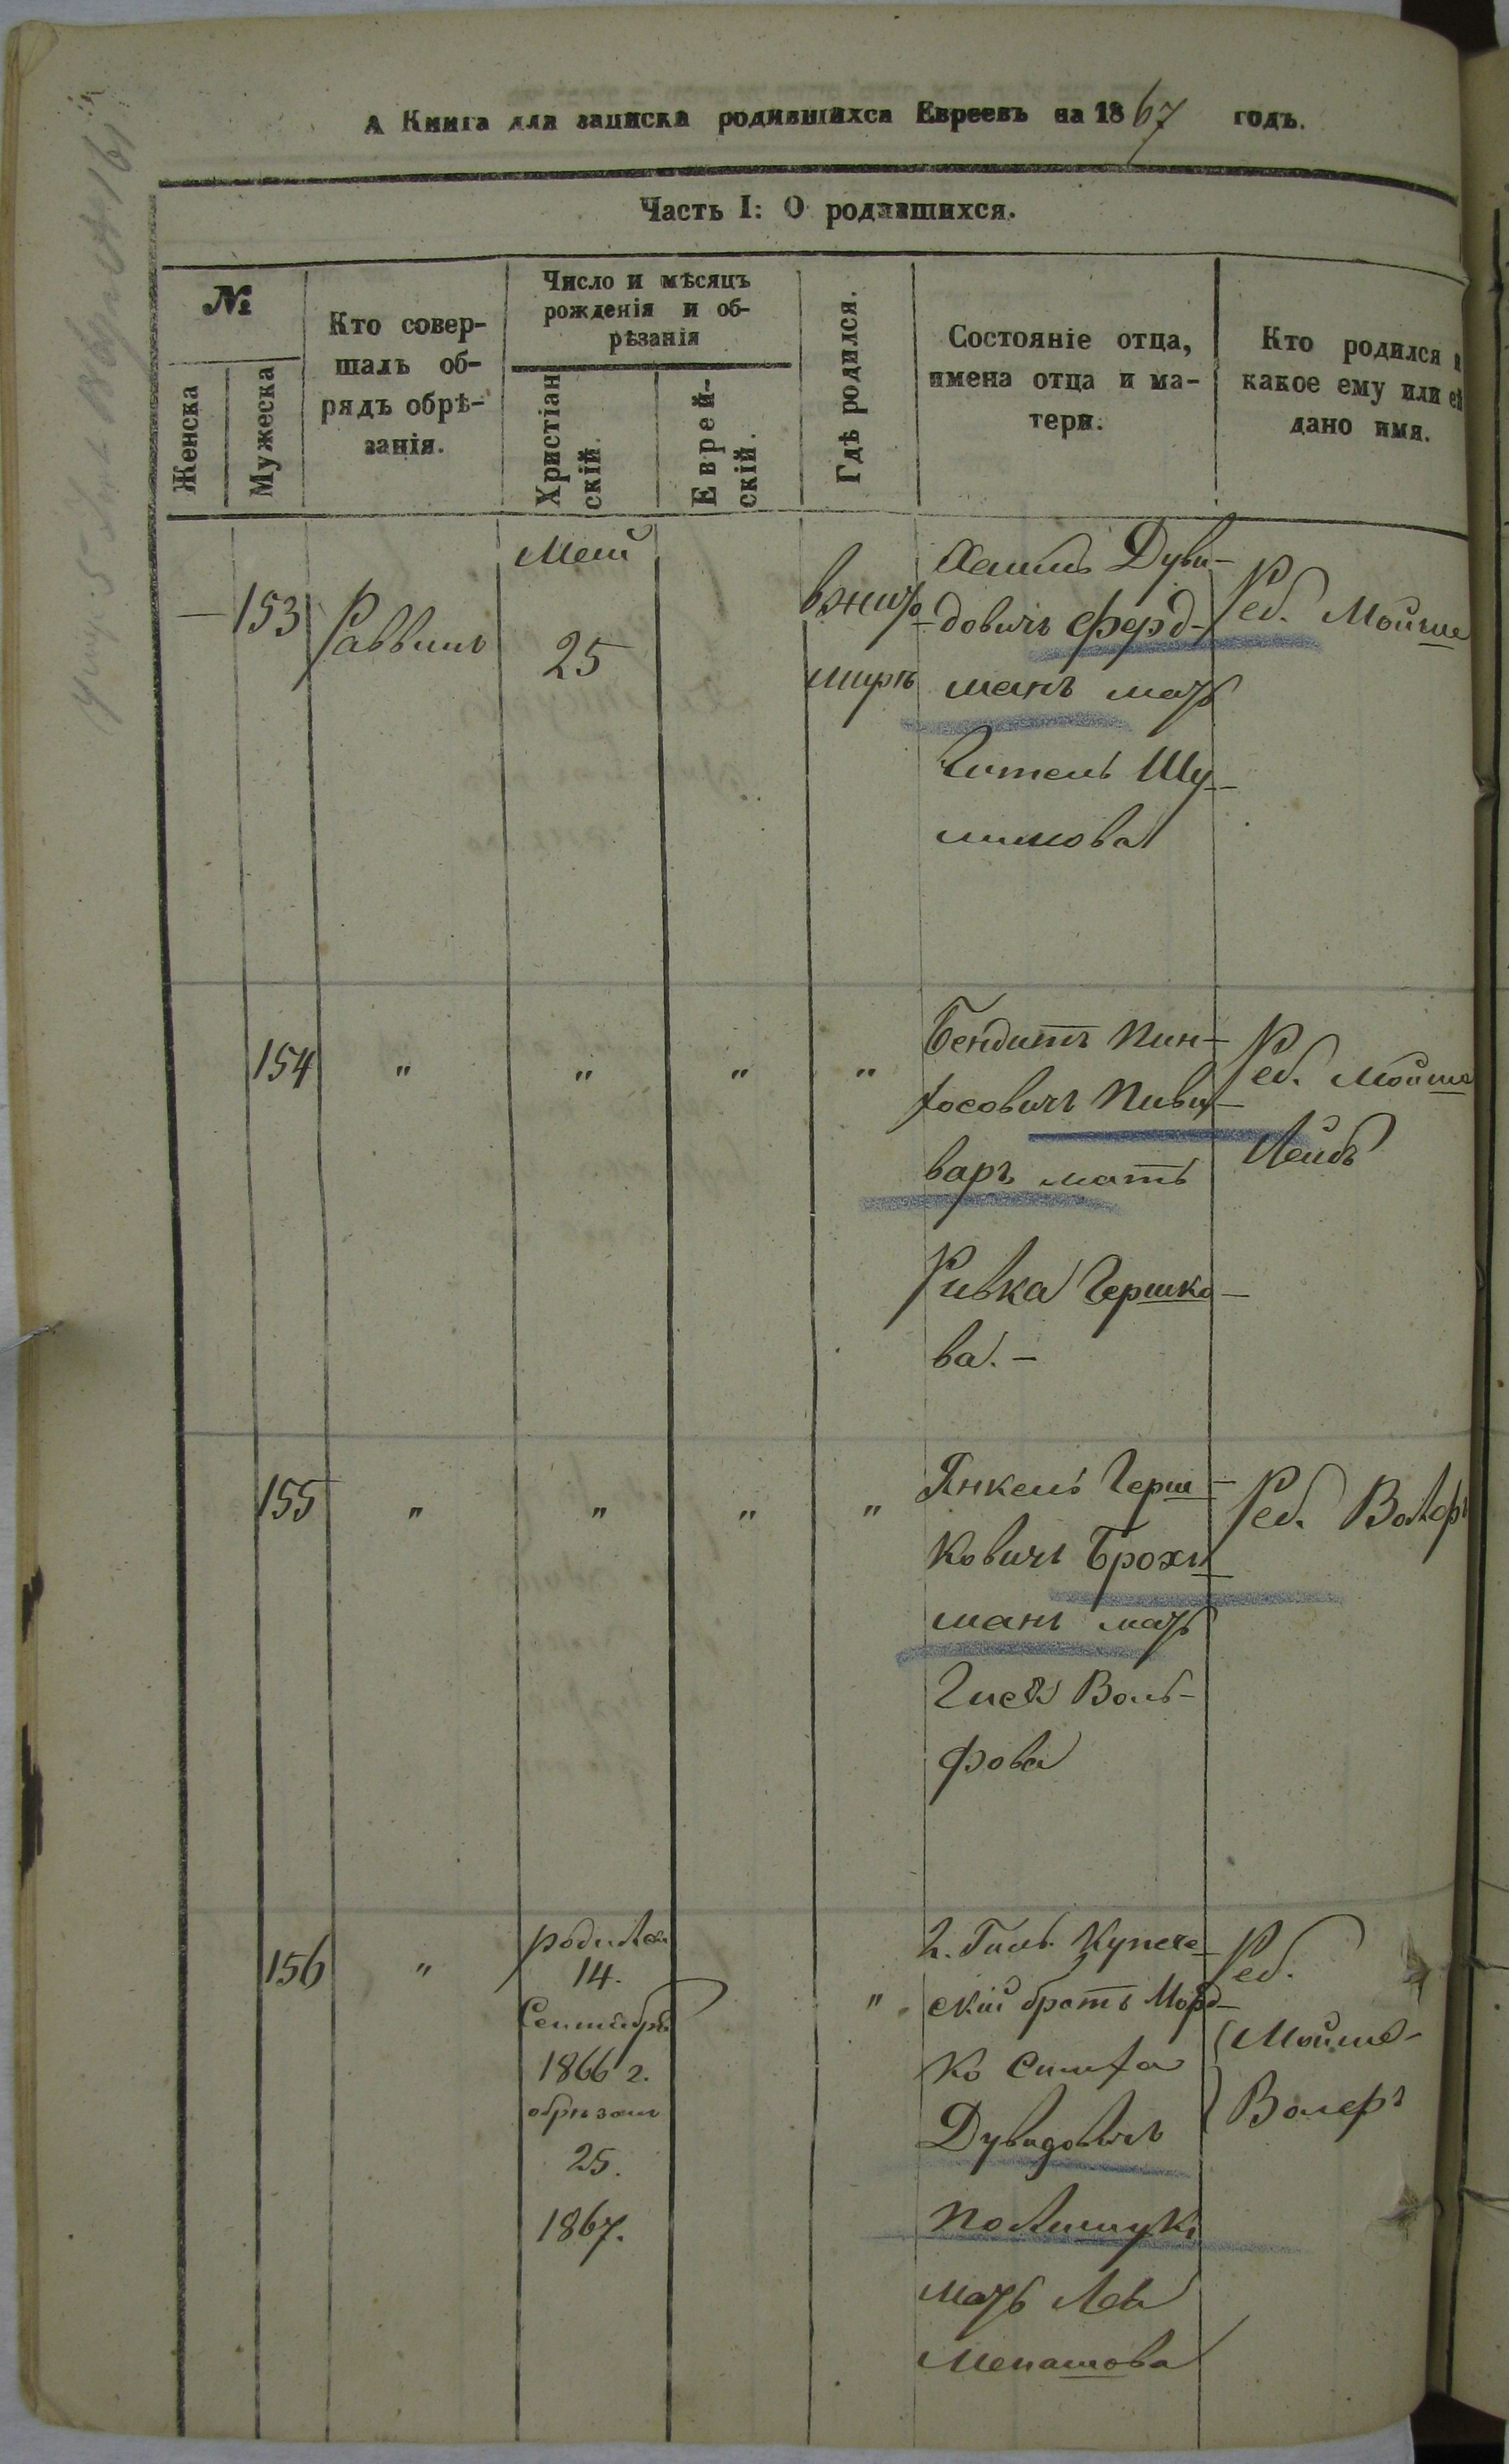 А Книга для записки родившихся Евреевъ на 1867 годъ.
Часть I: О родившихся.
№
Женска
Мужеска
Кто совер-
шалъ об-
рядъ обрѣ-
занія.
Число и мѣсяцъ
рожденія и об-
рѣзанія
Христіан
скій.
Еврей-
скій.
Гдѣ родился.
Состояніе отца,
имена отца и ма-
тери.
Кто родился и
какое ему или ей
дано имя.
— 153
Раввинъ
Май
25
вжито
мирѣ
Дуви-
довичъ Ферд-
манъ мать
Шу-
лимова
Реб. Мойше
154
"
"
"
"
Бендитъ Пин-
хосовичъ Пиво-
варъ мать
Ривка Гершко-
ва. —
Реб. Мойше
Лейбъ
155
"
"
"
"
Янкель Герш-
ковичъ Брох-
манъ мать
Гися Воль-
фова
Реб. Волфъ
156
"
родился
14.
Сентября
1866 г.
обрѣзанъ
25.
1867.
"
2. Гиль. Купече-
скій братъ Морд-
ко Симха
Дувидовичъ
Полищукъ
мать Лея
Менашова
Реб.
Мойше-
Волфъ